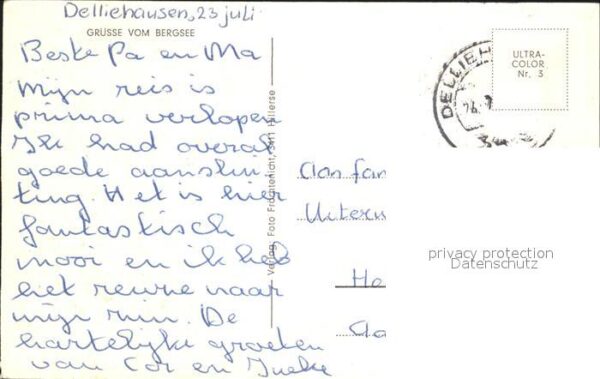 Delliehausen, 23 juli
GRÜSSE VOM BERGSEE
Beste Pa en Ma
Mijn reis is
prima verlopen
Ik had overal
goede aanslui
ting. Het is hier
fantastisch
mooi en ik heb
het reuze naar
mijn zin. De
hartelijke groeten
van Cor en Ineke
Verlag: Foto Frachtenicht, 3411 Hillerse
ULTRA-
COLOR
Nr. 3
DELLIEH
Aan fam
Uiterw
He
Aa
privacy protection
Datenschutz